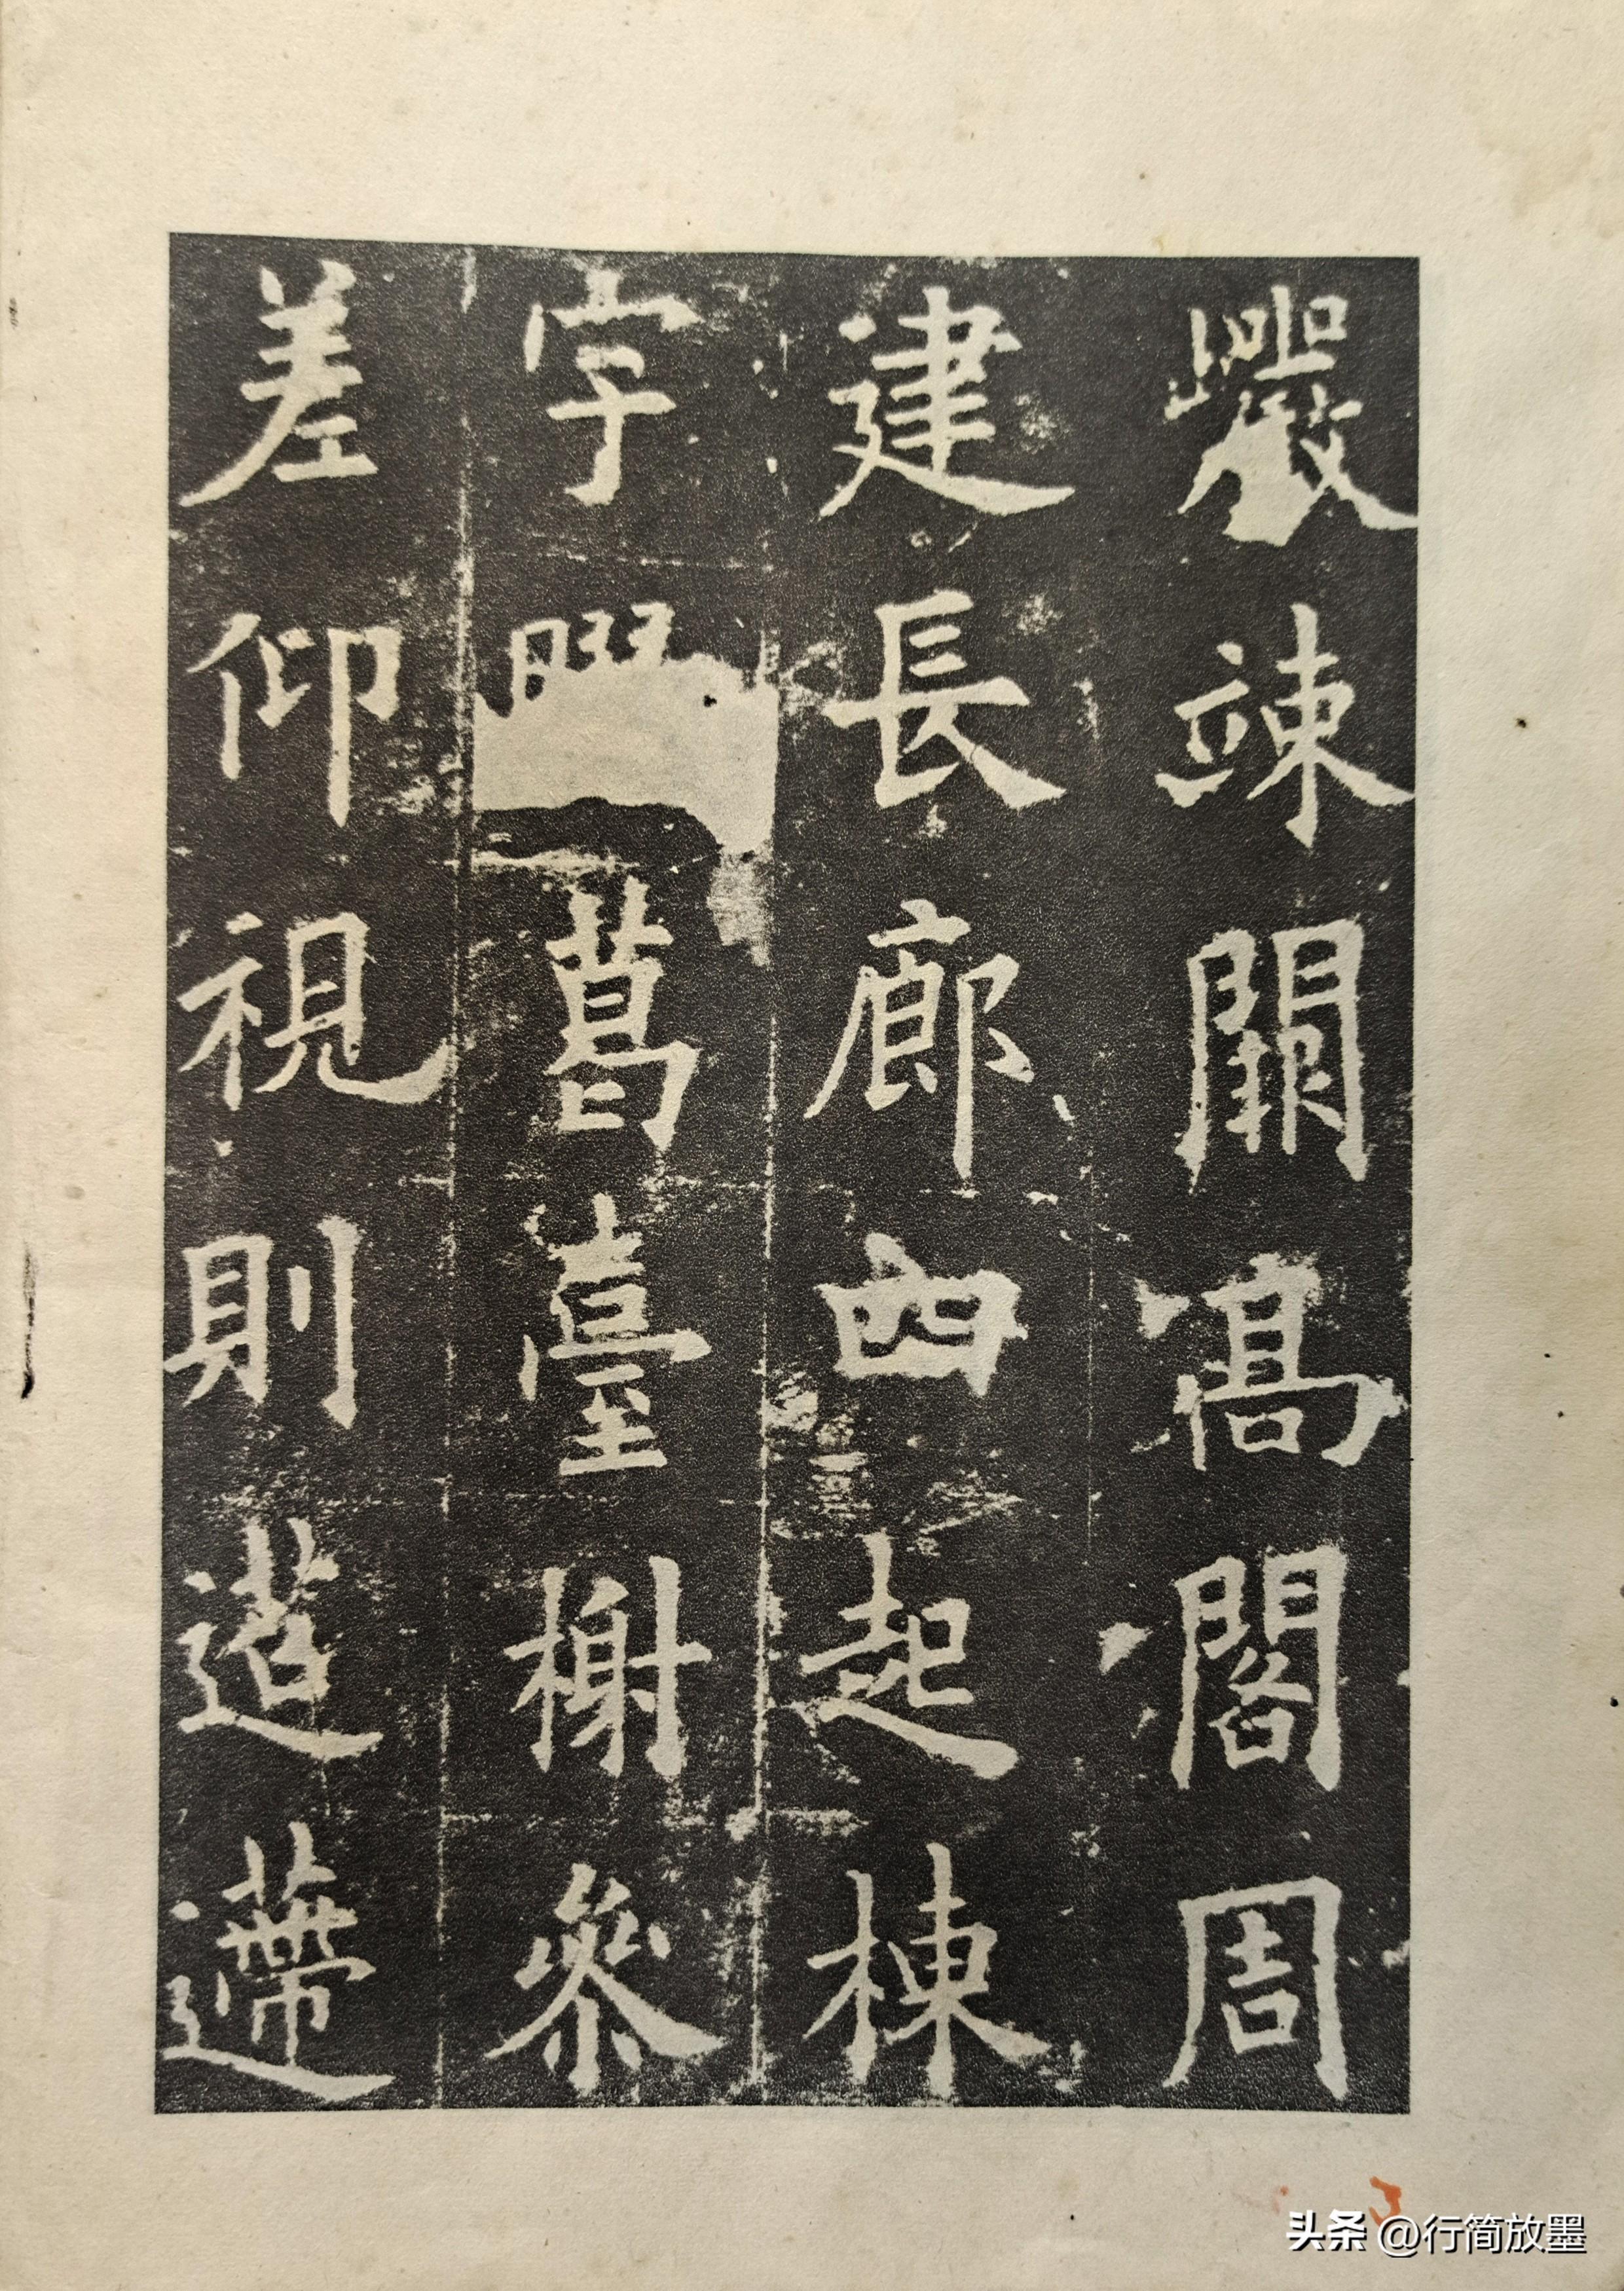 巖竦闕高閣周
建長廊四起棟
宇葛臺榭參
差仰視則迢遰
头条 @行简放墨